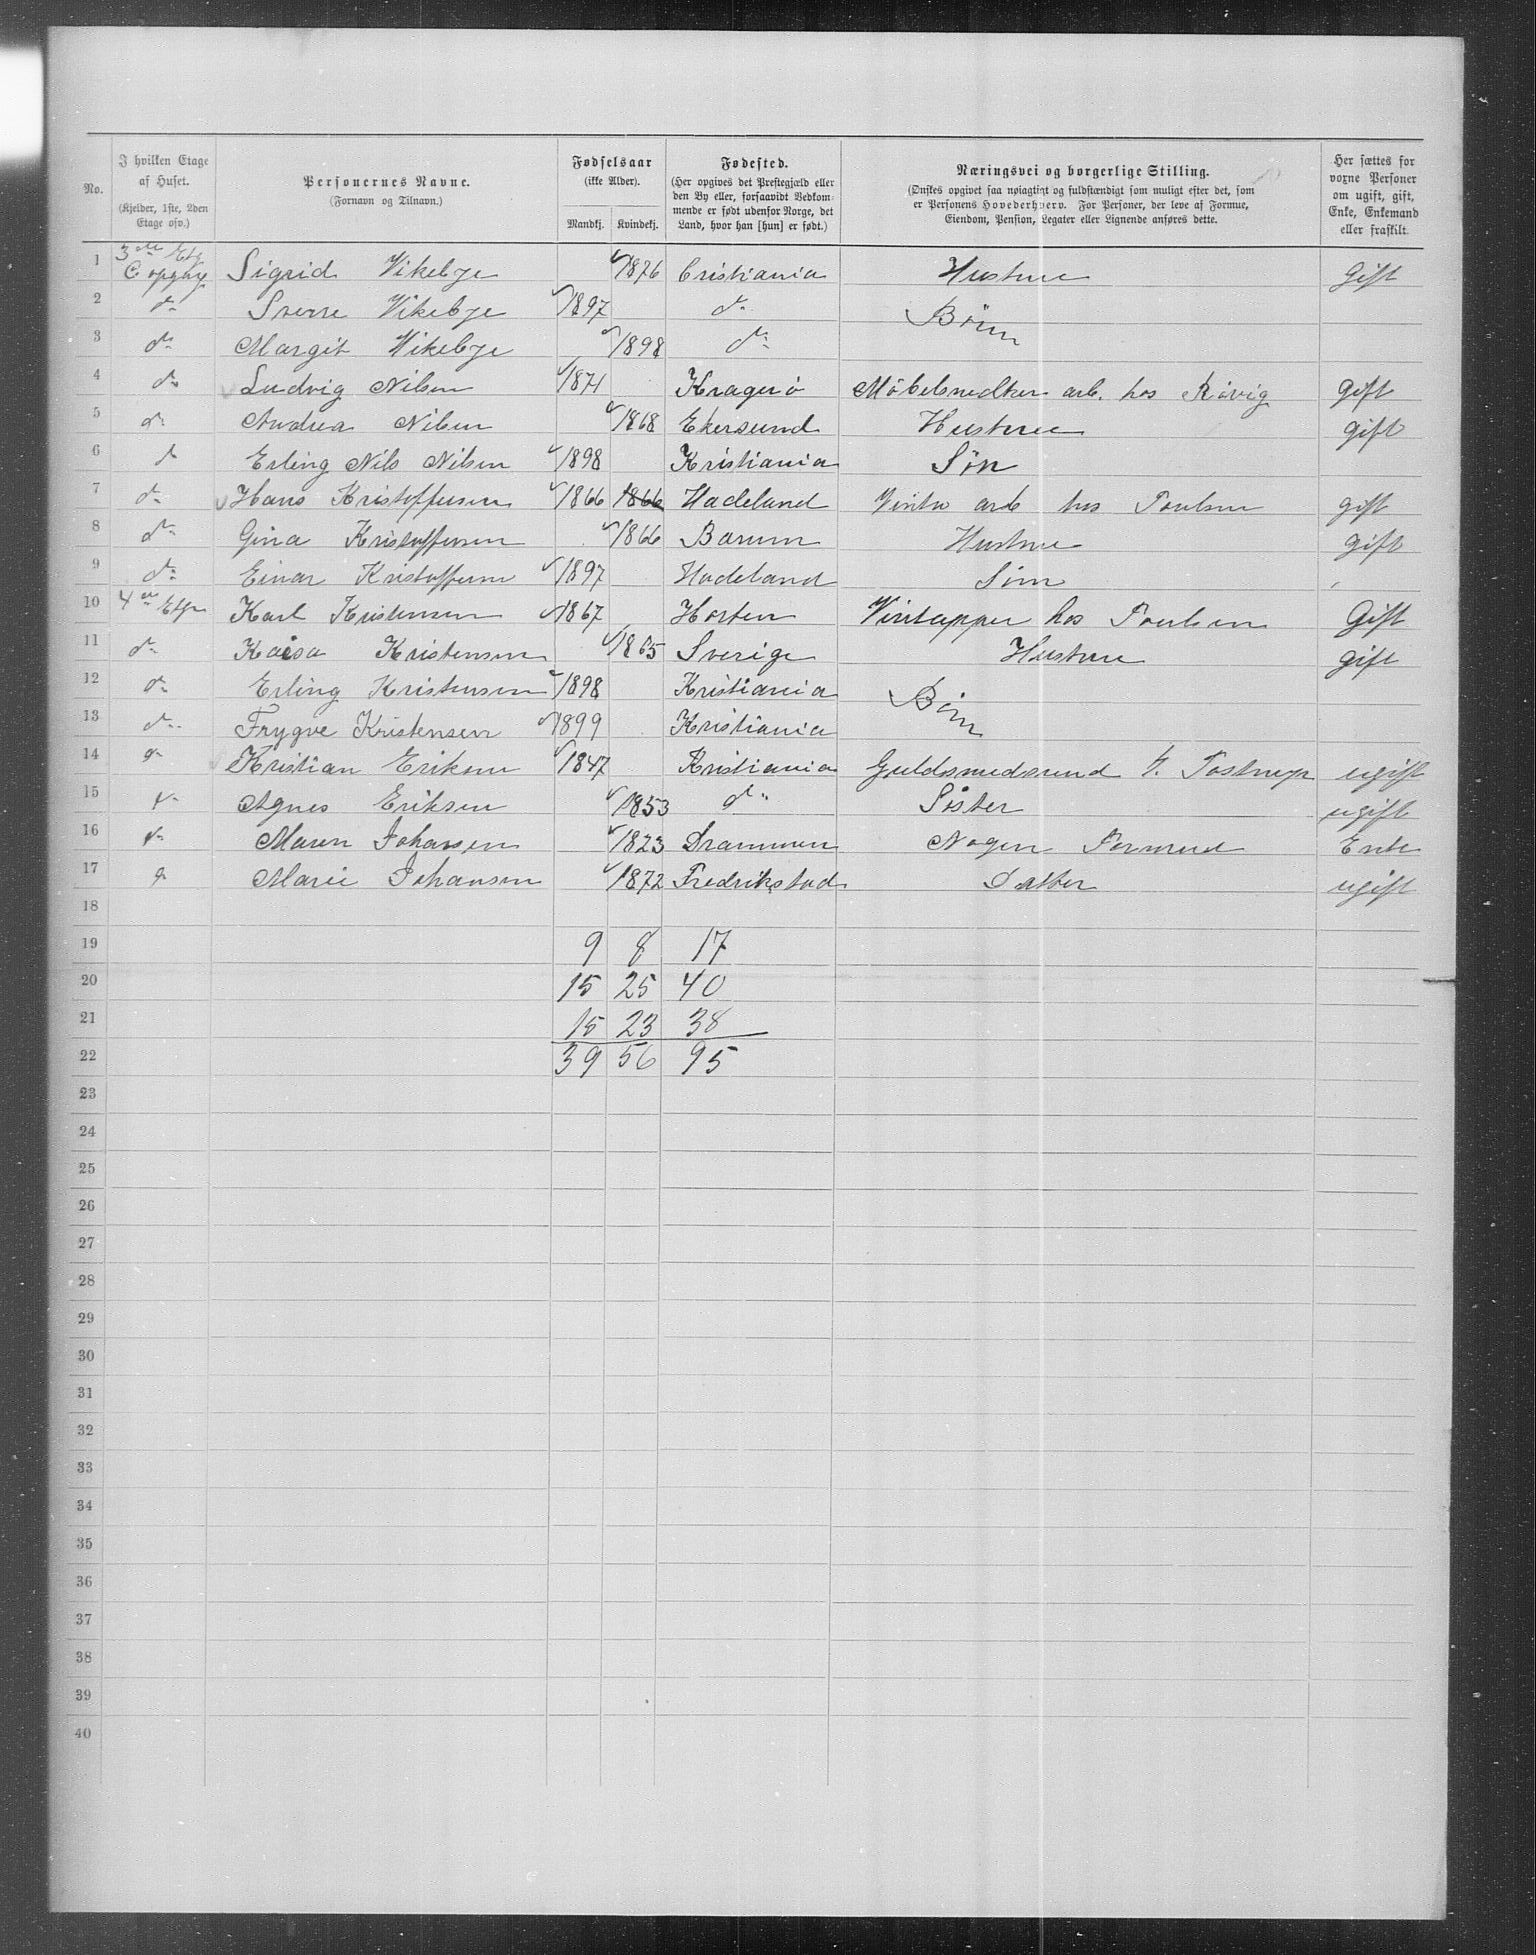 No. | I hvilken Etage af Huset. (Kjelder, 1ste, 2den Etage osv.) | Personernes Navne. (Fornavn og Tilnavn.) | Fødselsaar (ikke Alder). Mandkj. | Kvindekj. | Fødested. (Her opgives det Prestegjæld eller den By eller, forsaavidt Vedkommende er født udenfor Norge, det Land, hvor han [hun] er født.) | Næringsvei og borgerlige Stilling. (Ønskes opgivet saa nøiagtigt og fuldstændigt som muligt efter det, som er Personens Hovederhverv. For Personer, der leve af Formue, Eiendom, Pension, Legater eller Lignende anføres dette.) | Her sættes for voxne Personer om ugift, gift, Enke, Enkemand eller fraskilt.
1 | 3die Etg C opgng | Sigrid Vikebye | | 1876 | Cristiania | Hustrue | Gift
2 | do | Sverre Vikebye | 1897 | | do | Børn |
3 | do | Margit Vikebye | | 1898 | do | |
4 | do | Ludvig Nilsen | 1871 | | Kragerö | Möbelsnedker arb. hos Rövig | gift
5 | do | Andrea Nilsen | | 1868 | Ekersund | Hustrue | gift
6 | do | Erling Nils Nilsen | 1898 | | Kristiania | Sön |
7 | do | Hans Kristoffersen | 1866 | 1866 | Hadeland | arb hos Poulsen | gift
8 | do | Gina Kristoffersen | | 1866 | Barum | Hustrue | gift
9 | do | Einar Kristoffersen | 1897 | | Hadeland | Sön |
10 | 4de Etg | Karl Kristensen | 1867 | | Horten | Vintapper hos Poulsen | Gift
11 | do | Kaisa Kristensen | | 1865 | Sverige | Hustrue | gift
12 | do | Erling Kristensen | 1898 | | Kristiania | Børn |
13 | do | Trygve Kristensen | 1899 | | Kristiania | |
14 | do | Kristian Eriksen | 1847 | | Kristiania | Guldsmedsvend Tostrup | ugift
15 | do | Agnes Eriksen | | 1853 | do | Sister | ugift
16 | do | Maren Johansen | | 1823 | Drammen | Nogen Formue | Enke
17 | do | Marie Johansen | | 1872 | Fredrikstad | Datter | ugift
18
19 | 9 | 8 | 17
20 | 15 | 25 | 40
21 | 15 | 23 | 38
22 | 39 | 56 | 95
23
24
25
26
27
28
29
30
31
32
33
34
35
36
37
38
39
40